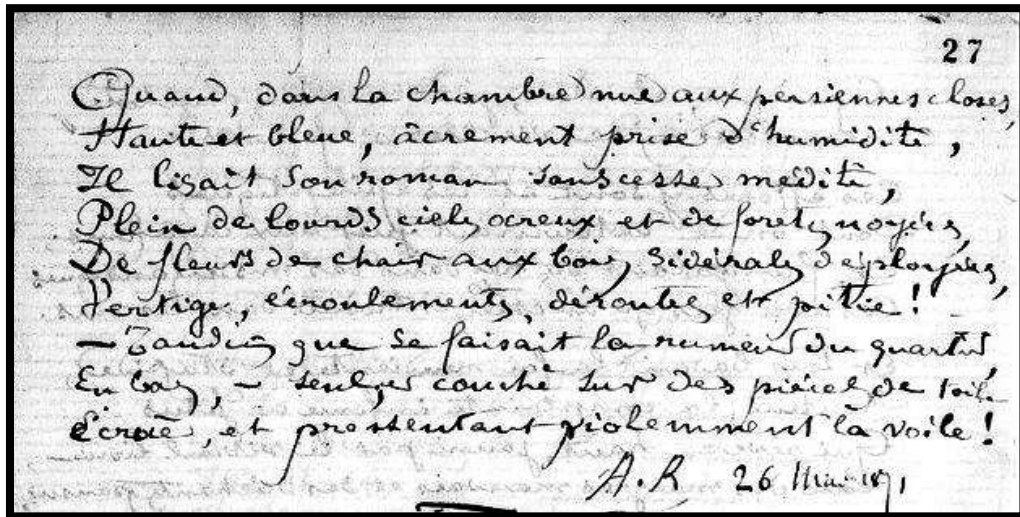 27
Quand, dans la chambre nue aux persiennes closes,
Haute et bleue, âcrement prise d'humidité,
Il lisait son roman sans cesse médité,
Plein de lourds ciels ocreux et de forets noyées,
De fleurs de chair aux bois sidérals déployées,
Vertige, écroulements, déroutes et pitié!
— Tandis que se faisait la rumeur du quartier,
En bas, — seul, et couché sur des pièces de toile
Écrue, et pressentant violemment la voile!
A. R 26 Mai 1871